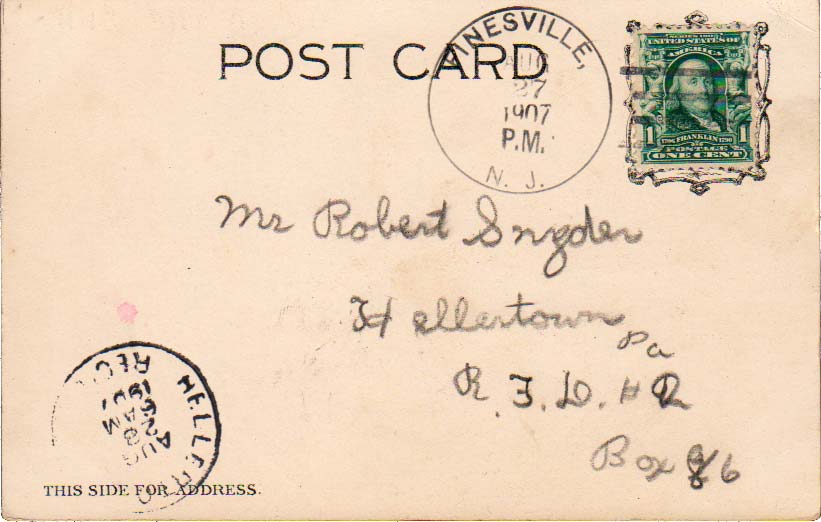 POST CARD
VINESVILLE,
AUG
27
1907
P.M.
N. J.
SERIES 1902
UNITED STATES OF
AMERICA
1 1706 FRANKLIN 1790 1
POSTAGE
ONE CENT
Mr Robert Snyder
Hellertown
Pa
R. F. D. # 2
Box 6
HELLER
AUG
28
AM
1907
REC'
THIS SIDE FOR ADDRESS.